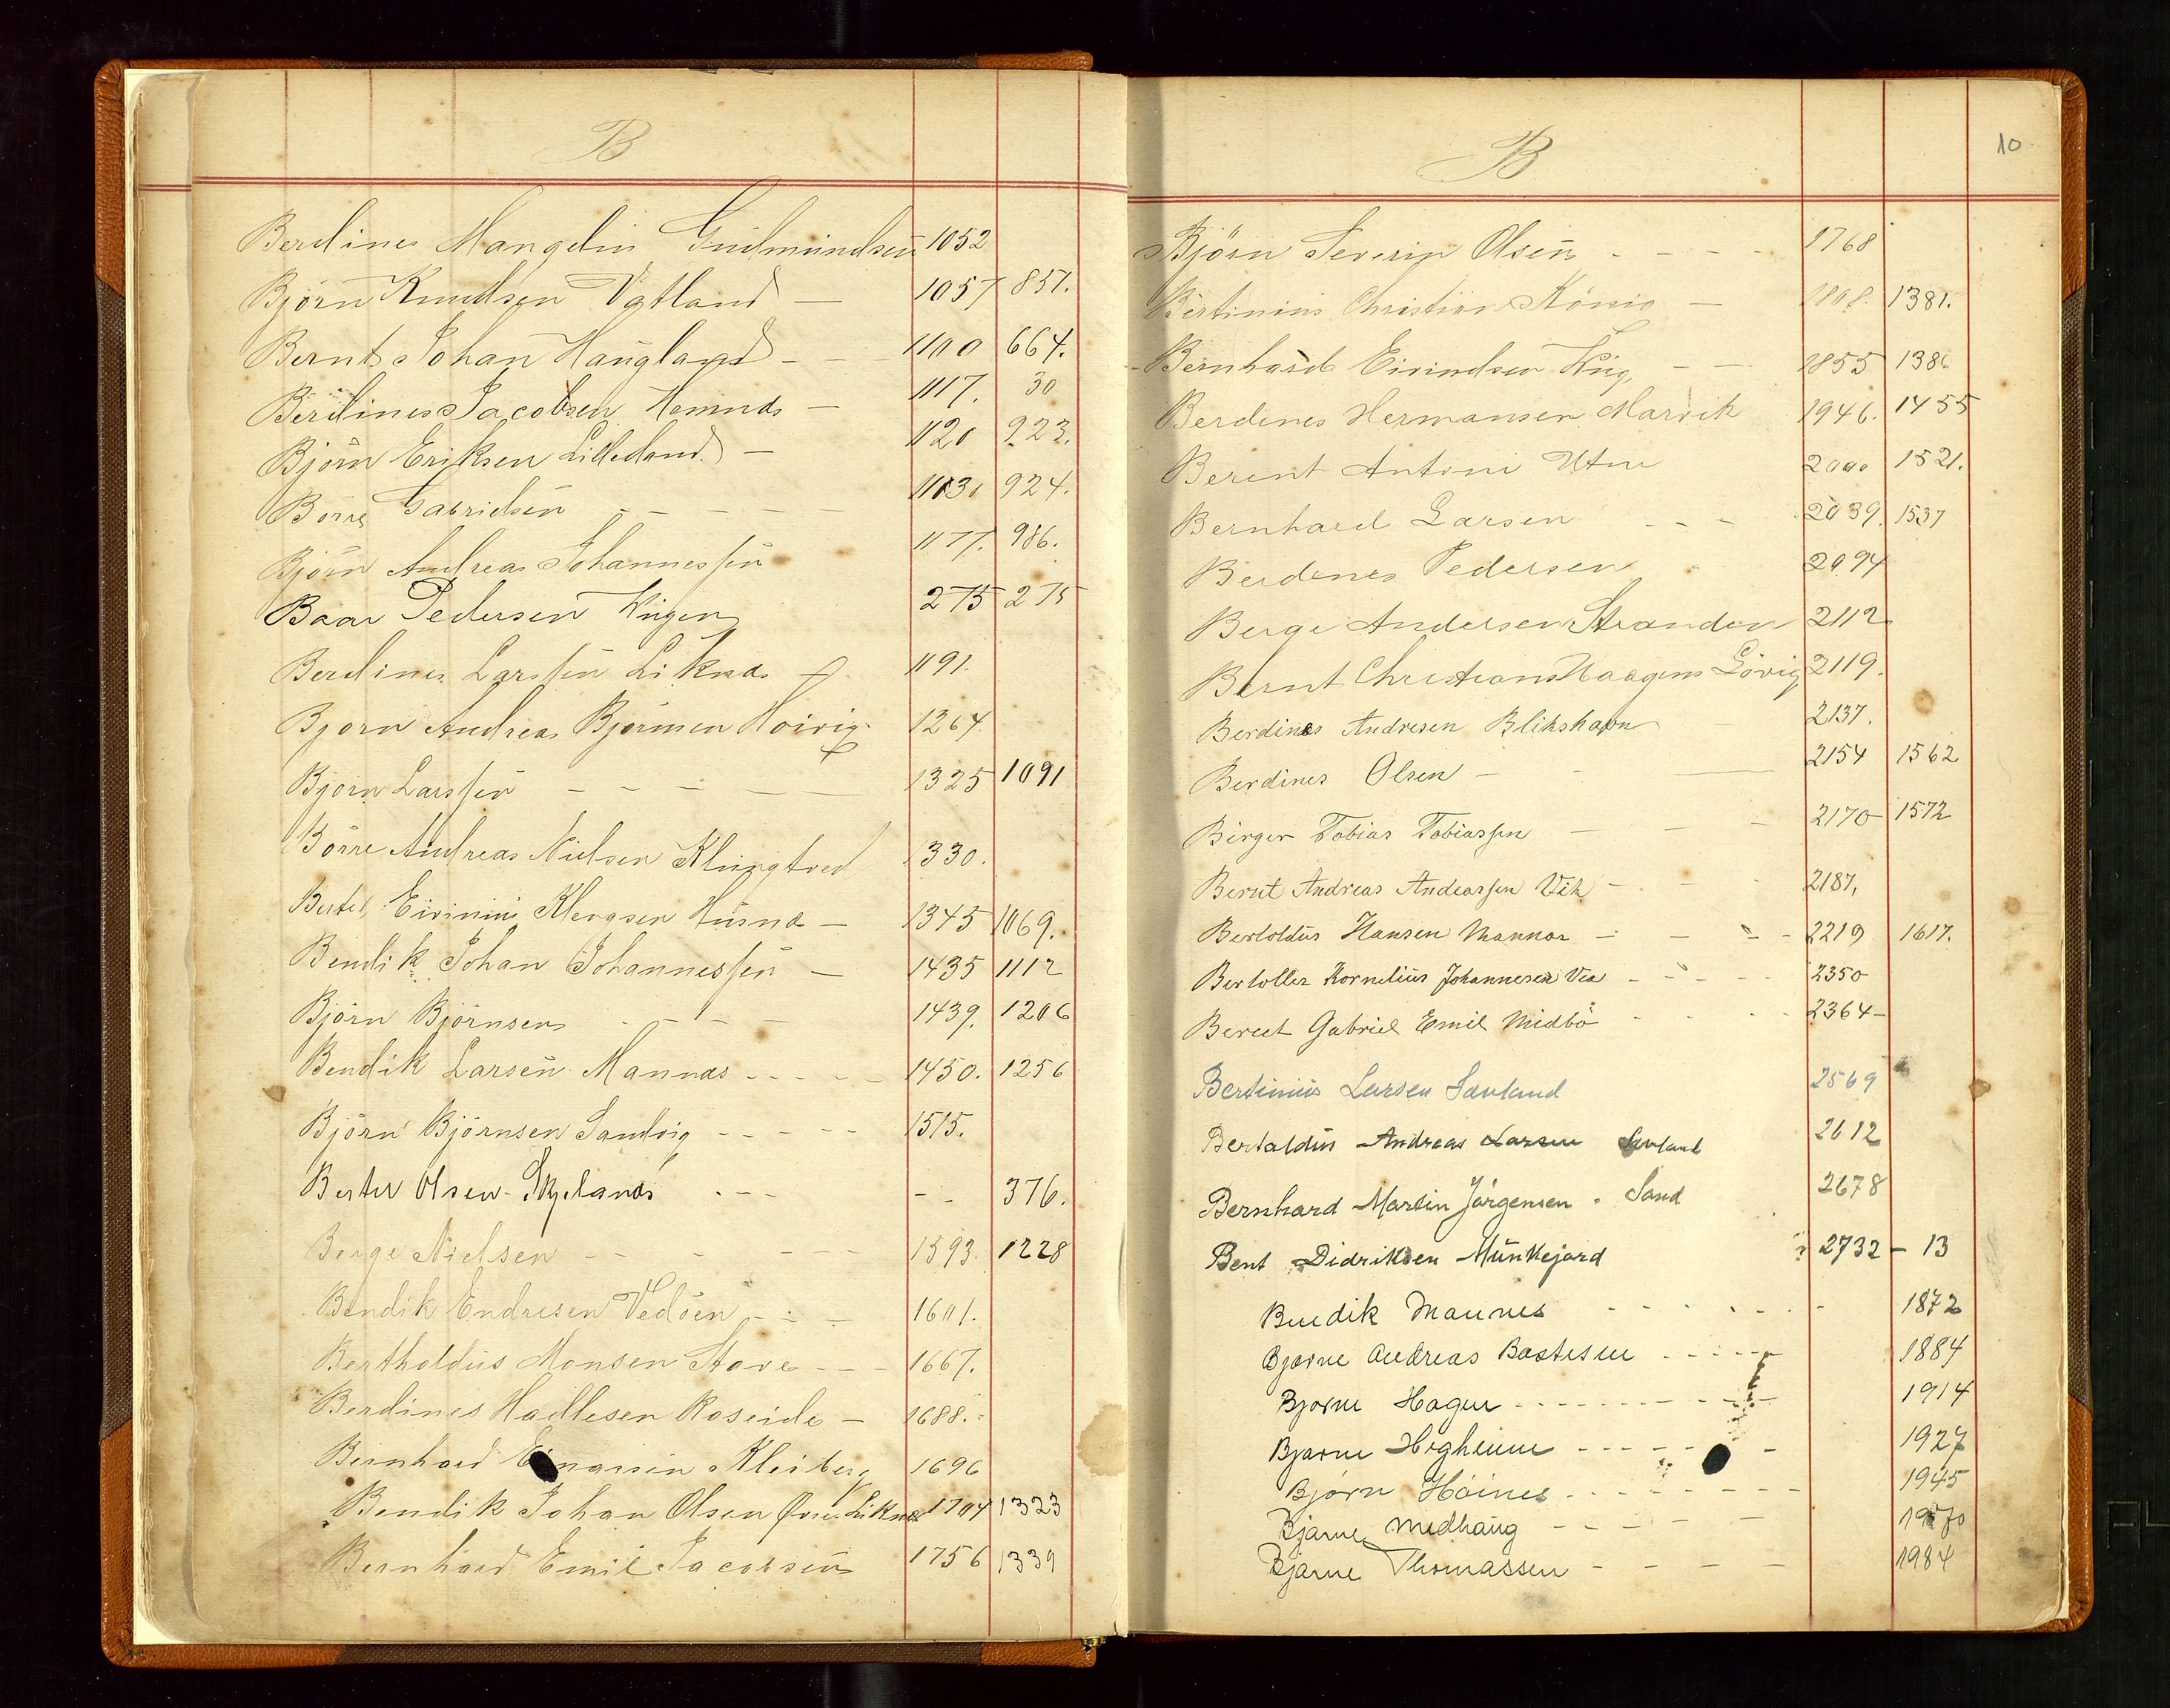 B
Berdines Mangelin Gudmundsen 1052
Björn Knudsen Vatland — 1057 851.
Bernt Johan Haugland - - 1100 664.
Berdines Jacobsen Hemnæs — 1117. 30
Björn Eriksen Lilleland — 1120 923.
Börre Gabrielsen - - - - - 1130 924.
Björn Andreas Johannessen 1177. 986.
Baar Pedersen Vingen 275 275
Berdines Larssen Liknæs 1191.
Bjorn Andreas Björnsen Hoivig 1264.
Bjorn Larssen - - - - - 1325 1091
Börre Andreas Nielsen Klungtved 1330.
Bertel Eivinius Klengsen Husnæ — 1345 1069.
Bendik Johan Johannessen — 1435 1112
Björn Björnsen - - - 1439. 1206
Bendik Larsen Mannæs - - - - 1450. 1256
Björn Björnsen Sandvig - - - - - 1515.
Bertel Olsen Skjelands - - - - - 376.
Berge Nielsen - - - - - - 1593. 1228
Bendik Endresen Vedöen - - - 1601.
Bertholdus Monsen Stave - - - 1667.
Berdines Hadlesen Roseide — 1688.
Bernhard Kleiberg 1696
Bendik Johan Olsen Övre Liknæs 1704 1323
Bernhard Emil Jacobsen 1756 1339
B
10
Björn Severin Olsen - - - - 1768
Bertinius Christian König — 1808. 1381.
Bernhard Eivindsen Vig - - 1855 138
Berdines Hermansen Marvik 1946. 1455
Berent Antoni Utne 2000 1521.
Bernhard Larsen - - - 2039. 1537
Berdines Pedersen 2094
Berge Andersen Stranden 2112
Bernt Christians Haagens Lövig 2119.
Berdines Andresen Blikshavn 2137.
Berdines Olsen - - — 2154 1562
Birger Tobias Tobiassen — - - 2170 1572
Bernt Andreas Andeassen Vik - - - 2187.
Bertoldus Hansen Mannæs - - - - 2219 1617.
Bertolles Kornelius Johannesen Vea - - - - - 2350
Berent Gabriel Emil Midbö - - - - - 2364-
Bertinius Larsen Sævland 2569
Bertaldus Andreas Larsen Sævland 2612
Bernhard Martin Jörgensen - Sand 2678
Bent Didriksen Munkejord 2732 - 13
Bendik Mannes - - - - - - - 1872
Bjarne Andreas Bastesen - - - - - 1884
Bjarne Hagen - - - - - - - - - 1914
Bjarne Hegheim - - - - - - 1927
Bjørn Höines - - - - - - - - 1945
Bjarne Medhaug - - - - - - 1970
Bjarne Thomassen - - - - - 1984